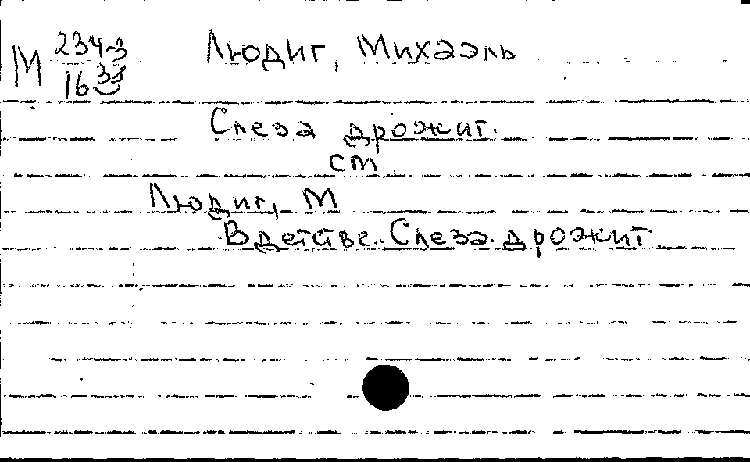 М 234-3 Людиг, Михаэль
16
Слеза дрожит.
см
Людиг, М
В детстве. Слеза дрожит